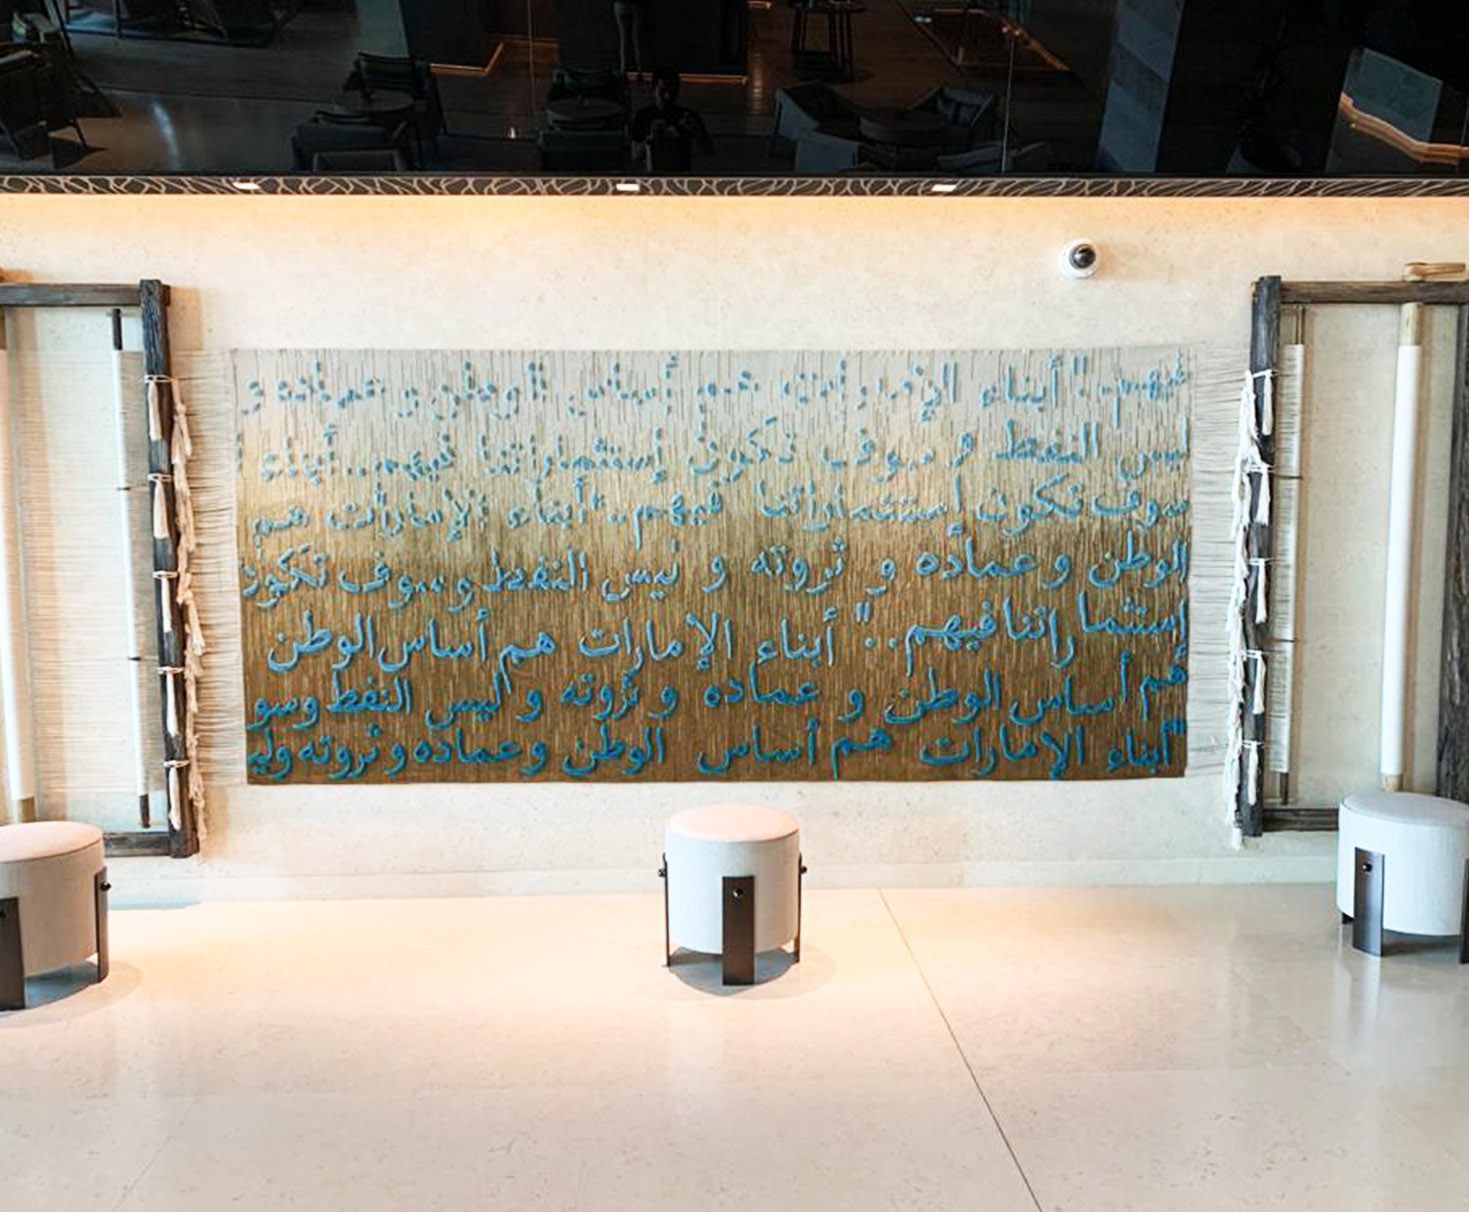 فيهم.." أبناء الإمارات هم أساس الوطن و عماده و
ليس النفط و سوف تكون إستثماراتنا فيهم.. أبناء
سوف تكون إستثماراتنا فيهم.. "أبناء الإمارات هم
الوطن و عماده و ثروته و ليس النفط و سوف تكون
إستثماراتنا فيهم.." أبناء الإمارات هم أساس الوطن
هم أساس الوطن و عماده و ثروته و ليس النفط وسو
"أبناء الإمارات هم أساس الوطن وعماده و ثروته ولي